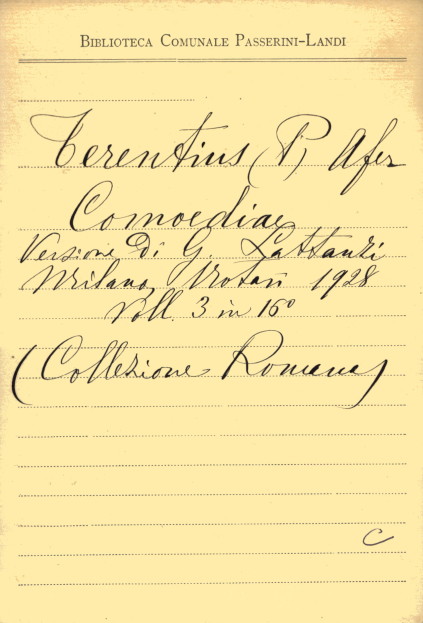 BIBLIOTECA COMUNALE PASSERINI-LANDI
Terentius (P) Afer
Comoediae
Versione di G. Lattanzi
Milano, Notari 1928
Voll. 3 in 16°
(Collezione Romana)
C